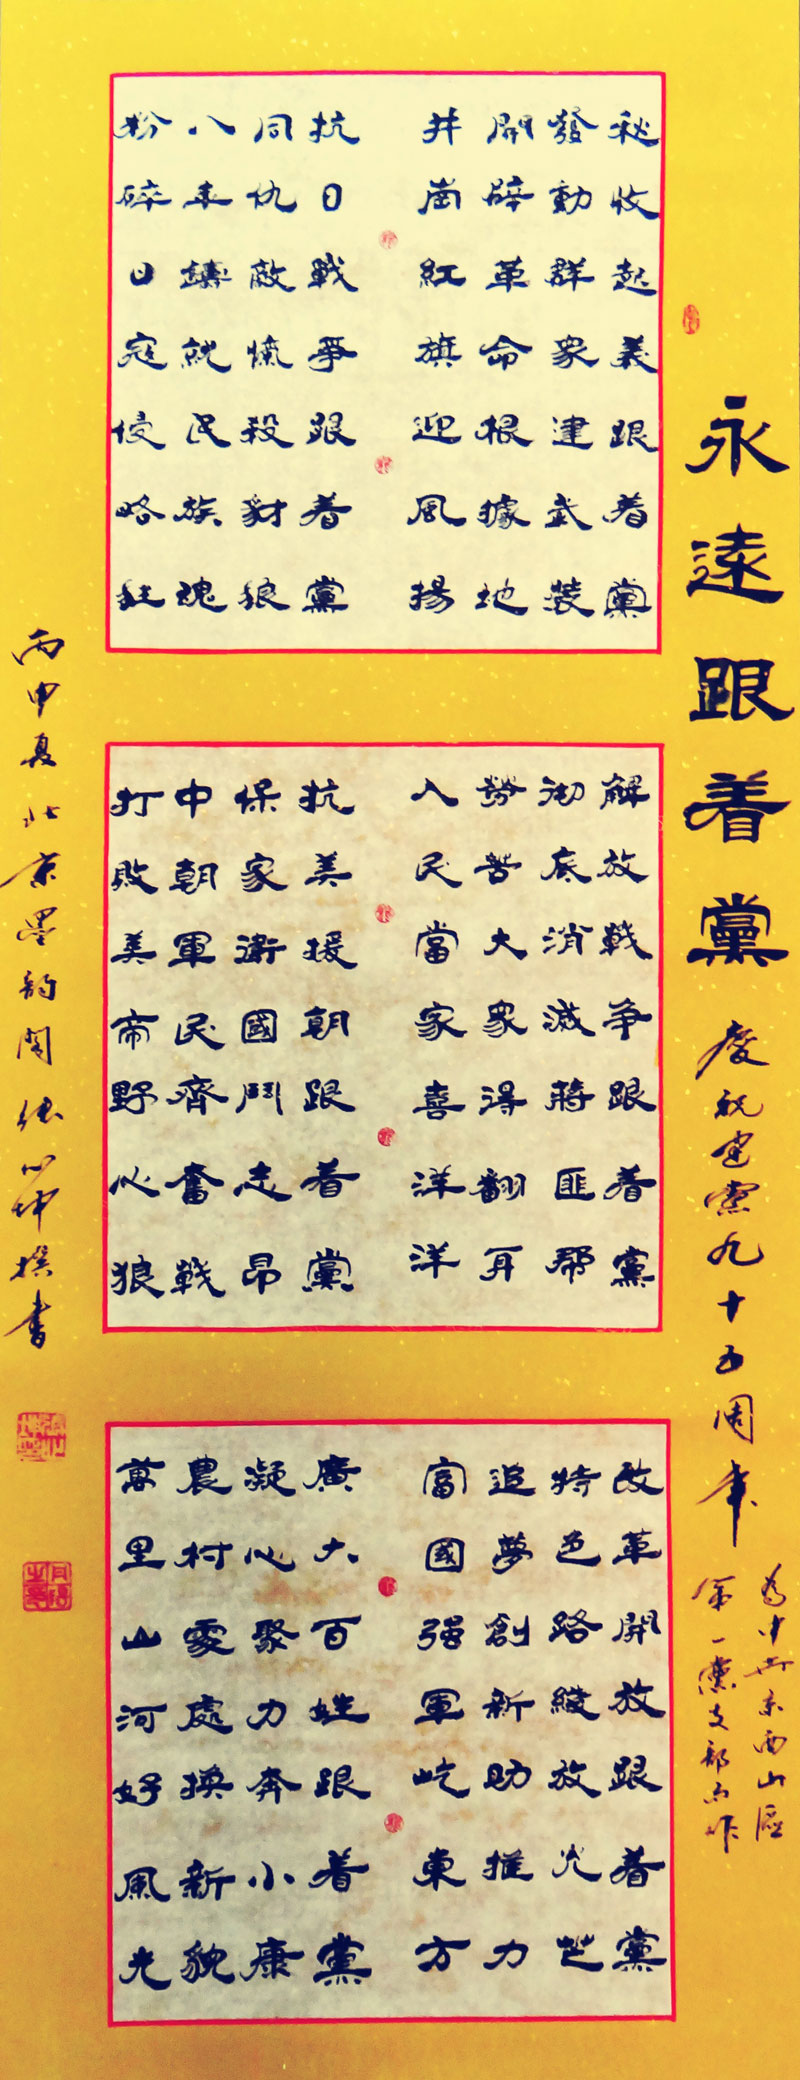 永遠跟着黨
慶祝建黨九十五周年
秋收起義跟着黨
發動群衆建武裝
開辟革命根據地
井崗紅旗迎風揚
抗日戰爭跟着黨
同仇敵愾殺豺狼
八年鑄就民族魂
粉碎日寇侵略狂
解放戰争跟着黨
彻底消滅蔣匪幫
勞苦大衆得翻身
人民當家喜洋洋
抗美援朝跟着黨
保家衛國鬥志昂
中朝軍民齊奮戰
打敗美帝野心狼
改革開放跟着黨
特色路綻放光芒
追夢創新助推力
富國强軍屹東方
廣大百姓跟着黨
凝心聚力奔小康
農村處處換新貌
萬里山河好風光
丙申夏北京墨韵閣張心坤撰書